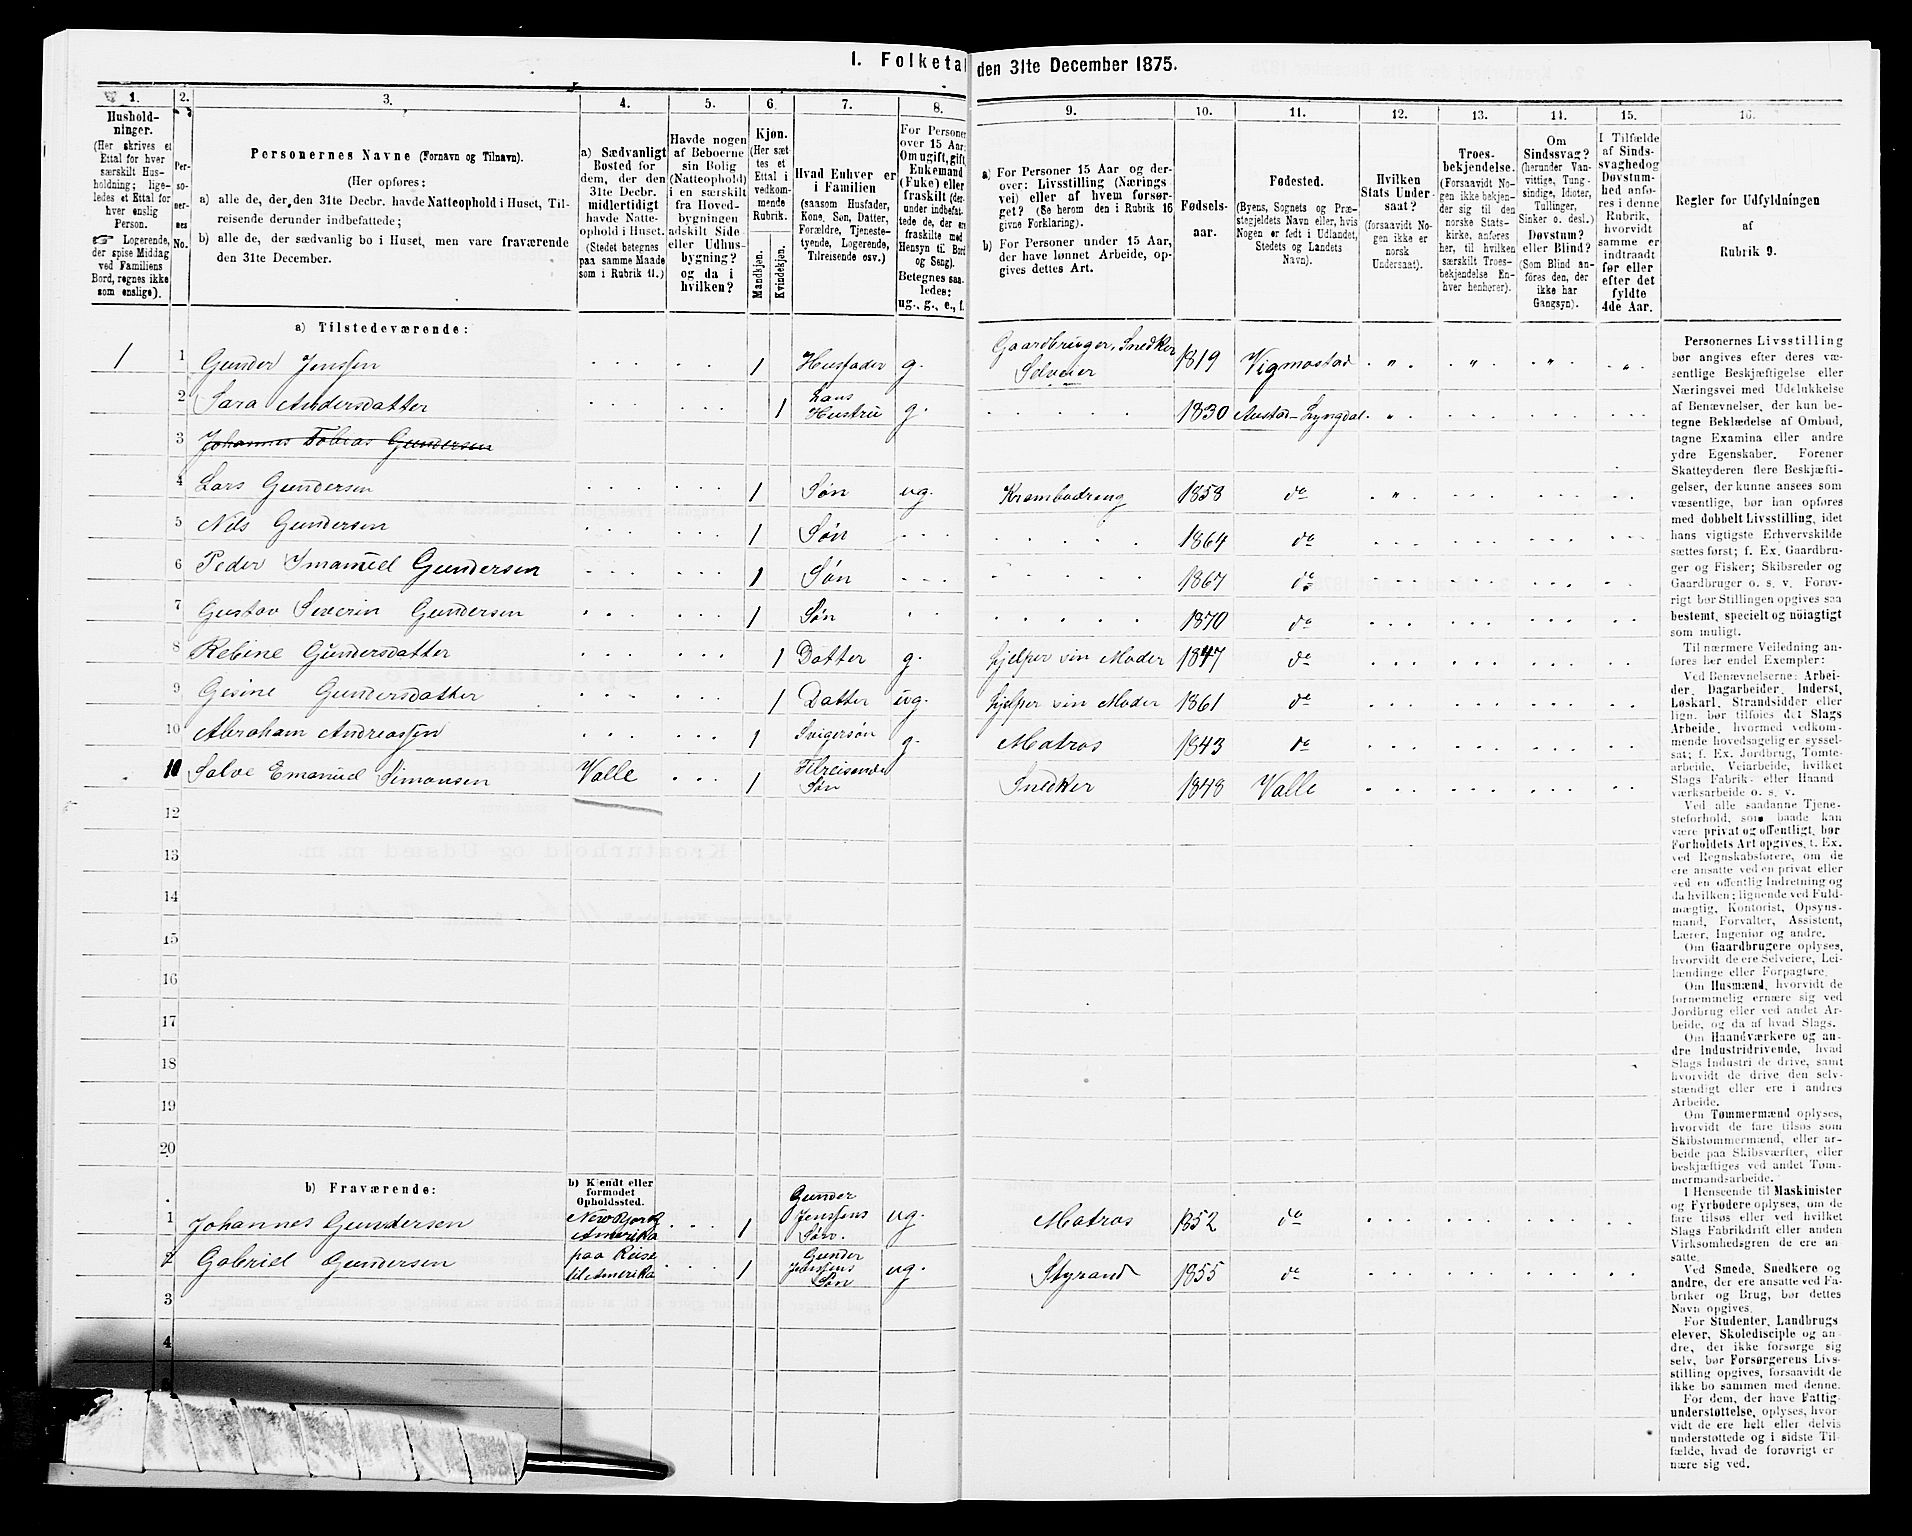 1. Folketal den 31te December 1875.
1.
2.
3.
4.
5.
6.
7.
8.
9.
10.
11.
12.
13.
14.
15.
16.
Hushold-
ninger.
(Her skrives et
Ettal for hver
særskilt Hus-
holdning; lige-
ledes et Ettal for
hver enslig
Person.
☞ Logerende,
der spise Middag
ved Familiens
Bord, regnes ikke
som enslige).
Per-
so-
ner-
nes
No.
Personernes Navne (Fornavn og Tilnavn).
(Her opføres:
a) alle de, der den 31te Decbr. havde Natteophold i Huset, Til-
reisende derunder indbefattede;
b) alle de, der sædvanlig bo i Huset, men vare fraværende
den 31te December.
a) Sædvanligt
Bosted for
dem, der den
31te Decbr.
midlertidigt
havde Natte-
ophold i Huset.
(Stedet betegnes
paa samme Maade
som i Rubrik 11.)
Havde nogen
af Beboerne
sin Bolig
(Natteophold)
i en særskilt
fra Hoved-
bygningen
adskilt Side-
eller Udhus-
bygning?
og da i
hvilken?
Kjøn.
(Her sæt-
tes et
Ettal i
vedkom-
mende
Rubrik.
Mandkjøn.
Kvindekjøn.
Hvad Enhver er
i Familien
(saasom Husfader,
Kone, Søn, Datter,
Forældre, Tjeneste-
tyende, Logerende,
Tilreisende osv.)
For Personer
over 15 Aar:
Om ugift, gift,
Enkemand
(Fuke) eller
fraskilt (der-
under indbefat-
tede de, der ere
fraskilte med
Hensyn til Bord
og Seng).
Betegnes saa-
ledes:
ug., g., e., f.
a) For Personer 15 Aar og der-
over: Livsstilling (Nærings-
vei) eller af hvem forsør-
get? (Se herom den i Rubrik 16
givne Forklaring).
b) For Personer under 15 Aar,
der have lønnet Arbeide, op-
gives dettes Art.
Fødsels-
aar.
Fødested.
(Byens, Sognets og Præ-
stegjeldets Navn eller, hvis
Nogen er født i Udlandet,
Stedets og Landets
Navn).
Hvilken
Stats Under-
saat?
(forsaavidt No-
gen ikke er
norsk
Undersaat).
Troes-
bekjendelse.
(Forsaavidt No-
gen ikke bekjen-
der sig til den
norske Stats-
kirke, anføres
her, til hvilken
særskilt Troes-
bekjendelse En-
hver henhører).
Om
Sindssvag?
(herunder Van-
vittige, Tung-
sindige, Idioter,
Tullinger,
Sinker o. desl.)
Døvstum?
eller Blind?
(Som Blind an-
føres den, der
ikke har
Gangsyn).
I Tilfælde
af Sinds-
svaghed og
Døvstum-
hed anfø-
res i denne
Rubrik,
hvorvidt
samme er
indtraadt
før eller
efter det
fyldte
4de Aar.
Regler for Udfyldningen
af
Rubrik 9.
a) Tilstedeværende:
1 1 Gunder Jenssen 1 Husfader g. Gaardbruger, Snedker Selveier 1819 Vigmostad
2 Sara Andersdatter 1 Hans Hustru g. 1830 Austad-Lyngdal
3 Johannes Tobias Gundersen
4 Lars Gundersen 1 Søn ug. Krambodreng 1858 do
5 Nils Gundersen 1 Søn 1864 do
6 Peder Imanuel Gundersen 1 Søn 1867 do
7 Gustav Severin Gundersen 1 Søn 1870 do
8 Rebine Gundersdatter 1 Datter g. hjelper sin Moder 1847 do
9 Gesine Gundersdatter 1 Datter ug. hjelper sin Moder 1861 do
10 Abraham Andreassen 1 Svigersøn g. Matros 1843 do
Salve Emanuel Simonsen Valle 1 Tilreisende Søn Snedker 1848 Valle
12
13
14
15
16
17
18
19
20
b) Fraværende:
b) Kjendt eller
formodet
Opholdssted.
1 Johannes Gundersen New Bjork Amerika 1 Gunder Jenssens Søn. ug. Matros 1852 do
2 Gabriel Gundersen paa Reise til Amerika 1 Gunder Jenssens Søn ug. Styrand 1855 do
3
4
Personernes Livsstilling
bør angives efter deres væ-
sentlige Beskjæftigelse eller
Næringsvei med Udelukkelse
af Benævnelser, der kun be-
tegne Beklædelse af Ombud,
tagne Examina eller andre
ydre Egenskaber. Forener
Skatteyderen flere Beskjæfti-
gelser, der kunne ansees som
væsentlige, bør han opføres
med dobbelt Livsstilling, idet
hans vigtigste Erhvervskilde
sættes først; f. Ex. Gaardbru-
ger og Fisker; Skibsreder og
Gaardbruger o. s. v. Forøv-
rigt bør Stillingen opgives saa
bestemt, specielt og nöiagtigt
som muligt.
Til nærmere Veiledning an-
føres her endel Exempler:
Ved Benævnelserne: Arbei-
der, Dagarbeider, Inderst,
Løskarl, Strandsidder eller
lign. bør tilføies det Slags
Arbeide, hvormed vedkom-
mende hovedsagelig er syssel-
sat; f. Ex. Jordbrug, Tomte-
arbeide, Veiarbeide, hvilket
Slags Fabrik- eller Haand-
værksarbeide o. s. v.
Ved alle saadanne Tjene-
steforhold, som baade kan
være privat og offentligt, bør
Forholdets Art opgives, t. Ex.
ved Regnskabsførere, om de
ere ansatte ved en privat eller
ved en offentlig Indretning og
da hvilken; lignende ved Fuld-
mægtig, Kontorist, Opsyns-
mand, Forvalter, Assistent,
Lærer, Ingeniør og andre.
Om Gaardbrugere oplyses,
hvorvidt de ere Selveiere, Lei-
lændinge eller Forpagtere.
Om Husmænd, hvorvidt de
fornemmelig ernære sig ved
Jordbrug eller ved andet Ar-
beide, og da af hvad Slags.
Om Haandværkere og an-
dre Industridrivende, hvad
Slags Industri de drive, samt
hvorvidt de drive den selv-
stændigt eller ere i andres
Arbeide.
Om Tømmermænd oplyses,
hvorvidt de fare tilsøs som
Skibstømmermænd, eller ar-
beide paa Skibsværfter, eller
beskjæftiges ved andet Tøm-
mermandsarbeide.
I Henseende til Maskinister
og Fyrbødere oplyses, om de
fare tilsøs eller ved hvilket
Slags Fabrikdrift eller anden
Virksomhedsgren de ere an-
satte.
Ved Smede, Snedkere og
andre, der ere ansatte ved Fa-
briker og Brug, bør dettes
Navn opgives.
For Studenter, Landbrugs-
elever, Skoledisciple og an-
dre, der ikke forsørge sig
selv, bør Forsørgerens Livs-
stilling opgives, forsaavidt de
ikke bo sammen med denne.
For dem, der have Fattig-
understøttelse, oplyses, hvor-
vidt de ere helt eller delvis
understøttede og i sidste Til-
fælde, hvad de forøvrigt er-
nære sig ved.